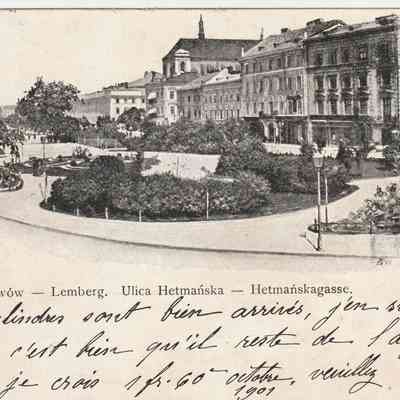 wów — Lemberg. Ulica Hetmańska — Hetmańskagasse.
lindres sont bien arrivés, j'en
c'est bien qu'il reste de l'a
je crois 1 fr. 60 octobre, veuillez
1901